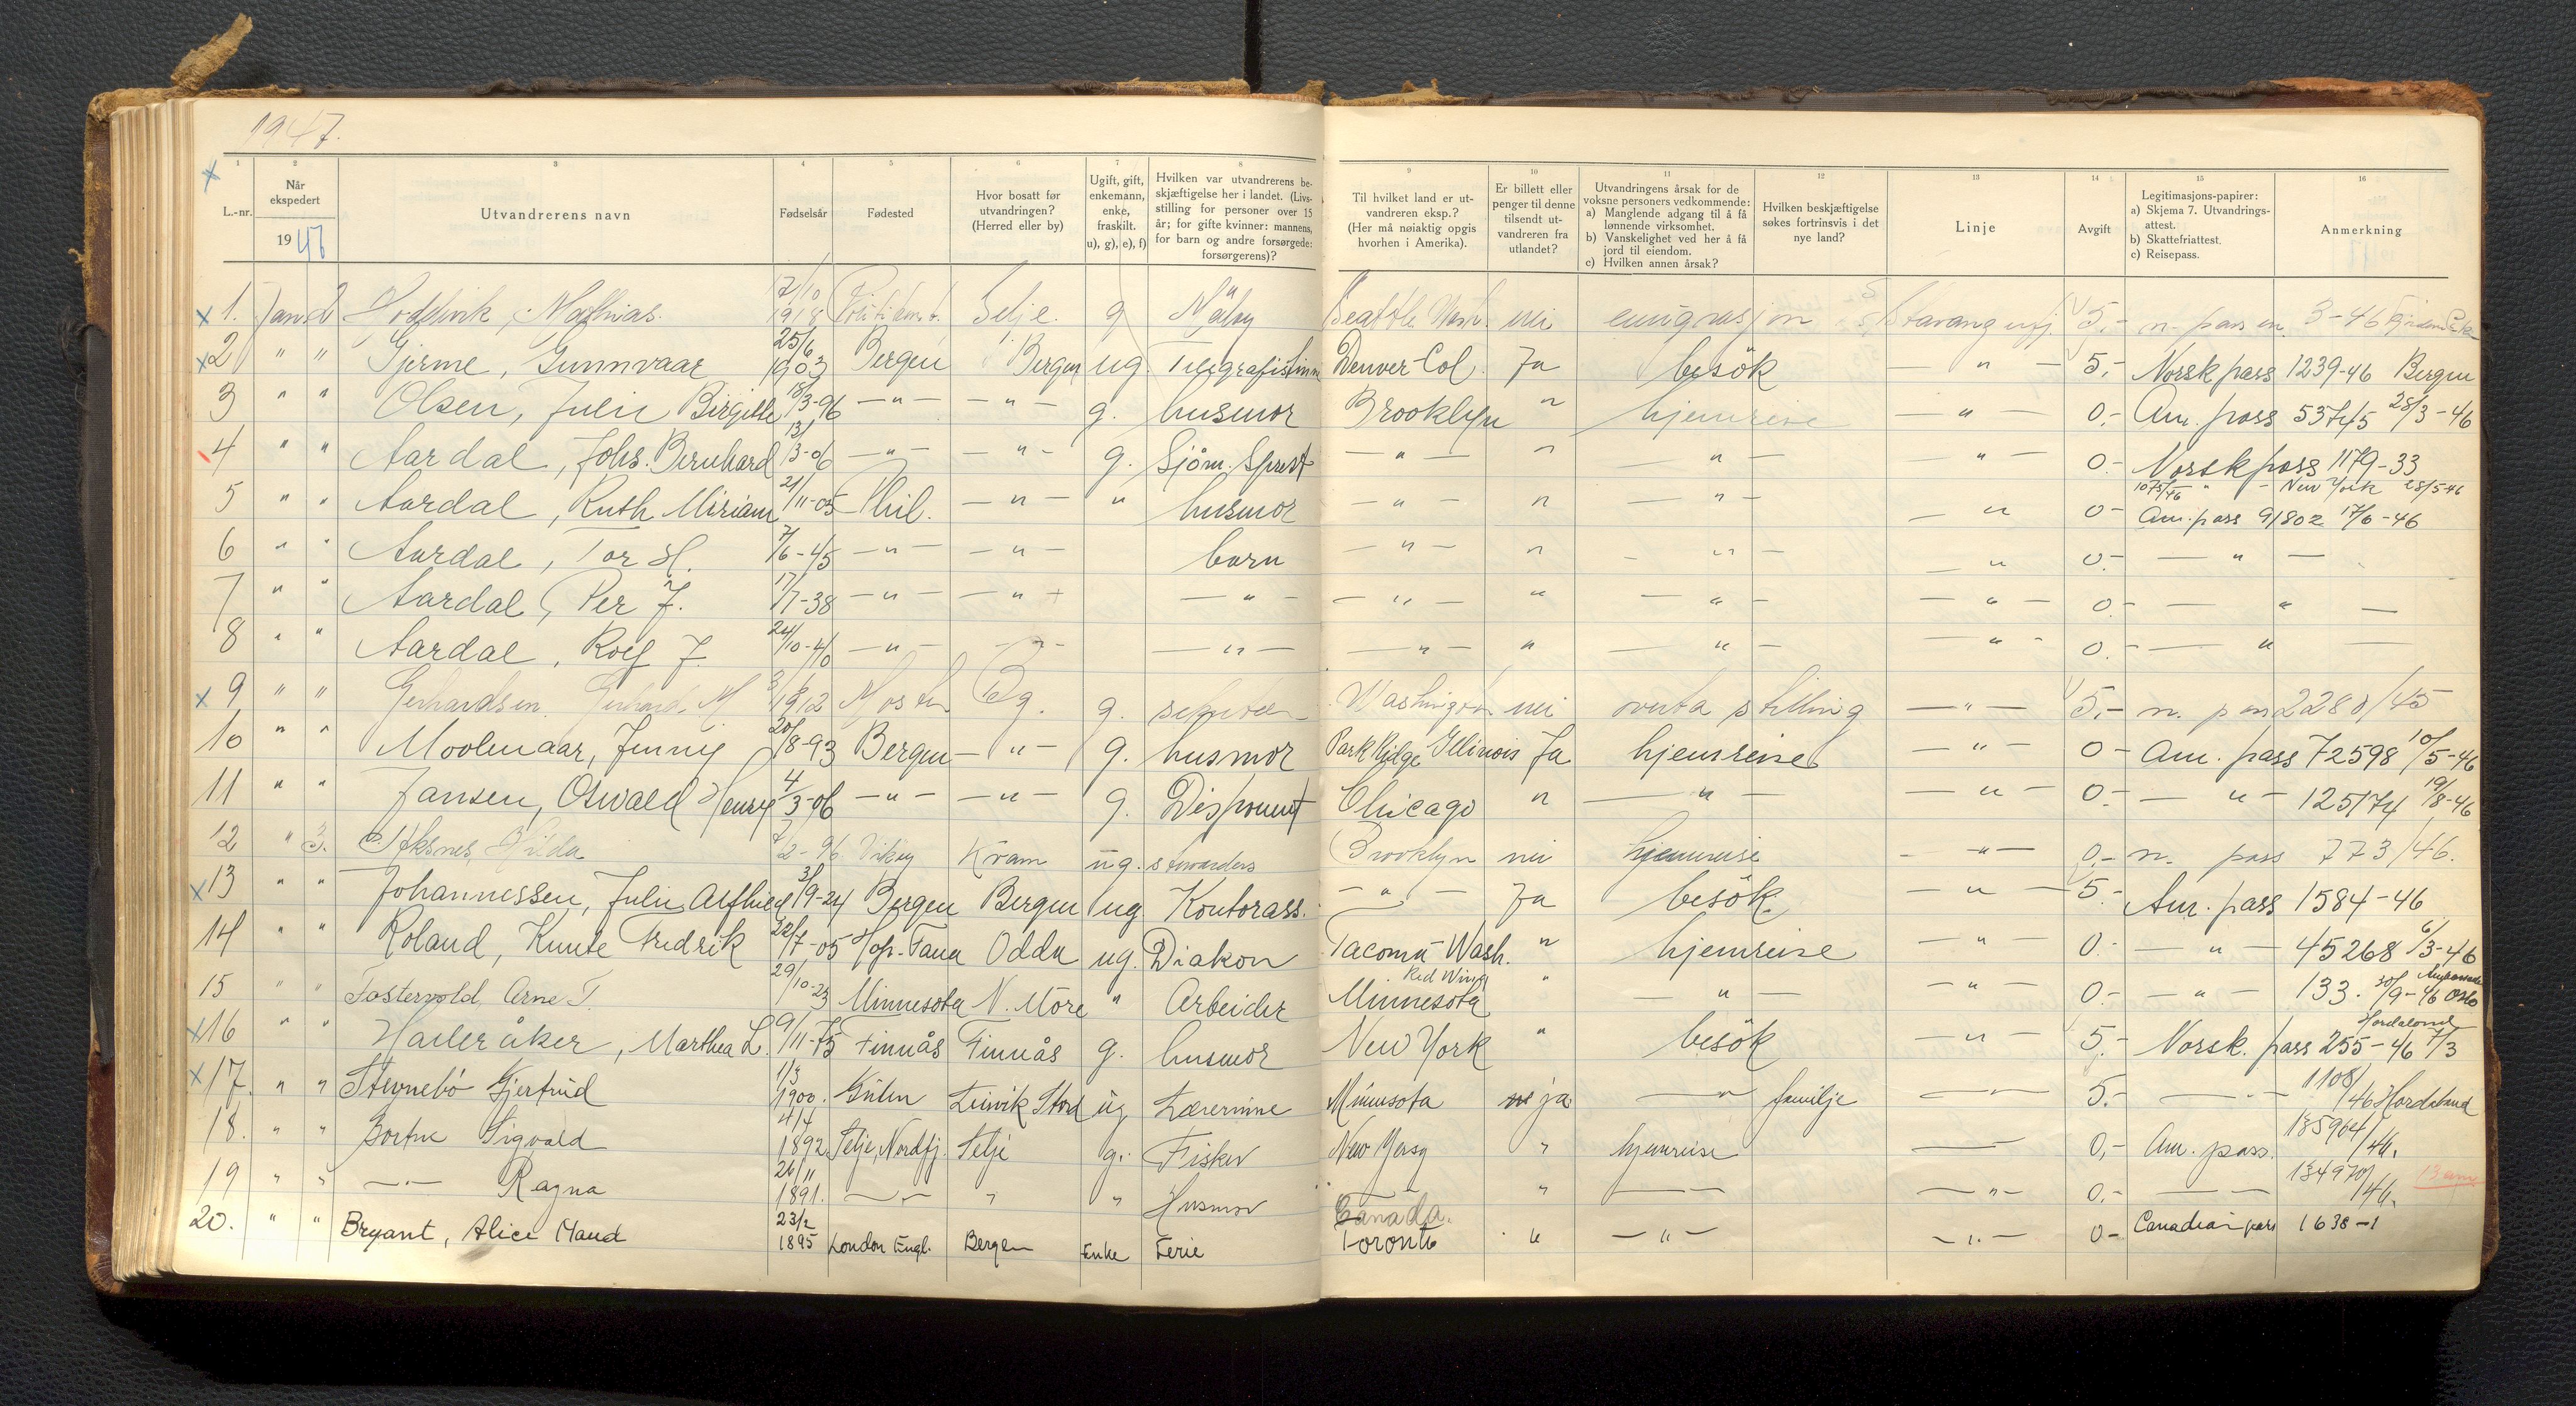 1947.
1 2 3 4 5 6 7 8 9 10 11 12 13 14 15 16
L.-nr. Når ekspedert 1947 Utvandrerens navn Fødselsår Fødested Hvor bosatt før utvandringen? (Herred eller by) Ugift, gift, enkemann, enke, fraskilt. u), g), e), f) Hvilken var utvandrerens beskjæftigelse her i landet. (Livsstilling for personer over 15 år; for gifte kvinner: mannens, for barn og andre forsørgede: forsørgerens)? Til hvilket land er utvandreren eksp.? (Her må nøiaktig opgis hvorhen i Amerika). Er billett eller penger til denne tilsendt utvandreren fra utlandet? Utvandringens årsak for de voksne personers vedkommende: a) Manglende adgang til å få lønnende virksomhet. b) Vanskelighet ved her å få jord til eiendom. c) Hvilken annen årsak? Hvilken beskjæftigelse søkes fortrinsvis i det nye land? Linje Avgift Legitimasjons-papirer: a) Skjema 7. Utvandringsattest. b) Skattefriattest. c) Reisepass. Anmerkning
x 1. Jan. 2 Hoddevik, Mathias. 7/10 1918 Selje g Seattle Wash. nei emigrasjon Stavangerfj. 5,- n. pass 3-46
x 2 " " Gjerme, Gunnvaar 25/6 1903 Bergen Bergen ug Telegrafistinne Denver Col. Ja besök — " — 5,- Norsk pass 1239-46 Bergen
3 " " Olsen, Julie Birgitte 18/3-96 — " — — " — g. husmor Brooklyn " hjemreise — " — 0,- Am. pass 53745 28/3-46
4 " " Aardal, Johs. Bernhard 13/3-06 — " — — " — g. Sjöm. Sprest — " — " — " — — " — 0.- Norsk pass 1179-33
5 " " Aardal, Ruth Miriam 21/11-05 Phil. — " — " husmor — " — " — " — — " — 0- 1075/46 " - New York 28/5-46 Am. pass 91802 17/6-46
6 " " Aardal, Tor H. 7/6-45 — " — — " — barn — " — " — " — — " — 0.- — " —
7 " " Aardal, Per J. 17/7-38 — " — — " — — " — — " — " — " — — " — 0- — " —
8 " " Aardal, Rolf J. 24/10-40 — " — — " — — " — — " — " — " — — " — 0.- — " —
x 9 " " Gerhardsen, Gerhard M 1912 Bg. g. Washington nei stilling — " — 5,- n. pass 2280/45
10 " " Moolenaar, Jenny 20/8-93 Bergen — " — g. husmor Park Ridge Illinois Ja hjemreise — " — 0- Am. pass 72598 10/5-46
11 " " Jansen, Oswald Henry 4/3-06 — " — — " — g. Disponent Chicago " — " — — " — 0.- — " — 125174 19/8-46
12 " 3. Aksnes, Hilda 2-96 Kvam ug. Brooklyn nei hjemreise — " — 0,- n. pass 773/46.
x 13 " " Johannessen, Julie Alfhild 3/9-24 Bergen Bergen ug Kontorass. — " — Ja besök — " — 5.- Am. pass 1584-46
14 " " Roland, Knute Fredrik 22/7-05 Hop-Fana Odda ug. Diakon Tacoma-Wash. " hjemreise — " — 0.- — " — 45268 6/3-46
15 " " Tastervold Arne T. 29/10-23 Minnesota N. Möre " Arbeider Red Wing Minnesota " — " — — " — 0.- — " — 133. 30/9-46 Oslo
x 16 " " , Marthea L. 9/11-75 Finnås Finnås g. husmor New York " besök — " — 5.- Norsk. pass 255-46 7/3 Hordaland
x 17. " " Stevnebö Gjertrud 1900. Gulen Leirvik Stord ug Lærerinne Minnesota ja — " — familje — " — 5.- — " — 1108/46 Hordaland
18. " " Sigvald 4/4 1892 Selje, Nordfj. Selje g. Fisker New Yersy " hjemreise — 0,- Am. pass. 185964/46.
19 " " — " — Ragna 26/11 1891. — " — " " Husmor " — — " — 0.- — 184970/46. 13 am
20. " " Bryant, Alice Maud 23/2 1895 London Engl. Bergen Enke Ferie Canada. Toronto " — " — — " — 0- Canadian pass 1638-1